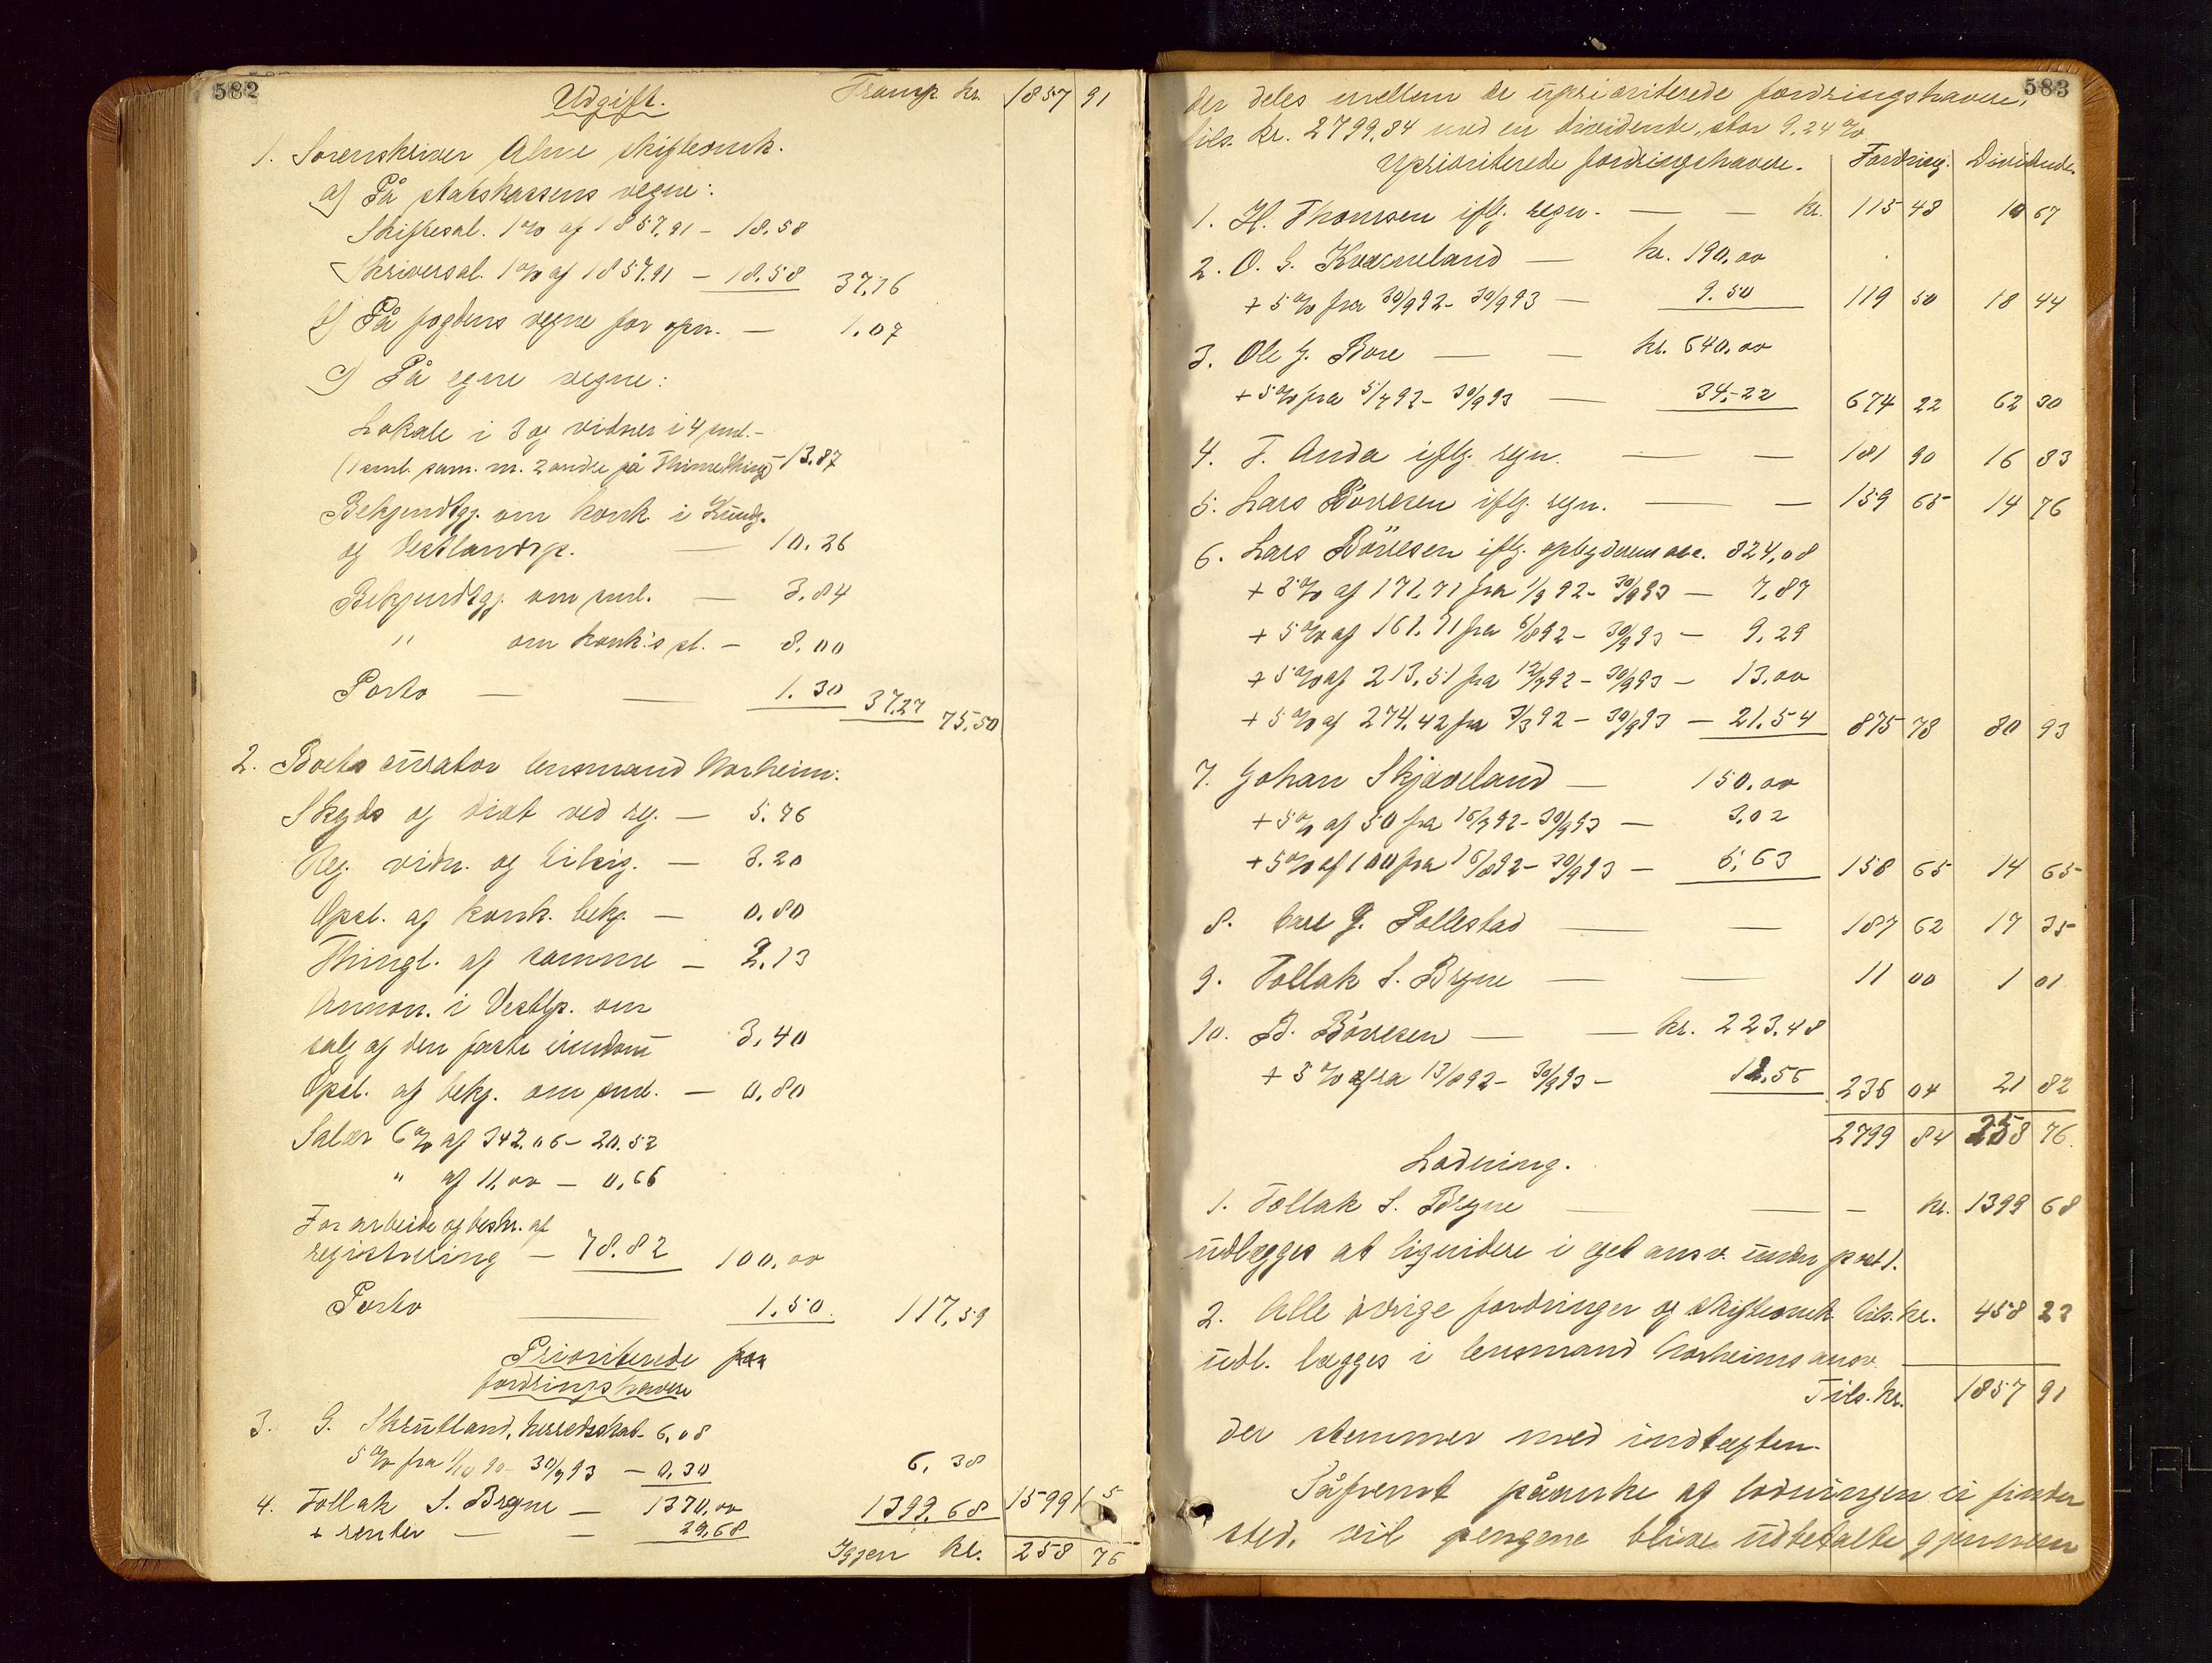 582
Udgift. Transp. kr. 1857 91
1. Sorenskriver Alme skifteomk.
a) På statskassens vegne:
Skiftesal. 1 % af 1857,91 – 18.58
Skriversal. 1 % af 1857.91 – 18.58 37,16
b) På fogdens vegne for opr. — 1.07
c) På egne vegne:
Lokale i 3 og vidner i 4 saml. –
(1 saml. sam. m. 2 andre på Thimethinget) – 13.87
Bekjendtgj. om konk. i Kundg.
og Vestlandsp. — 10.26
Bekjendtgj. om saml. — 3.84
" om konk's sl. – 8.00
Porto — — 1.30 37.27 75,50
2. Boets curator lensmand Norheim:
Skyds og diæt ved reg. — 5.76
Reg. vidn. og tilsig. — 3.20
Opsl. af konk. bekj. — 0.80
Thingl. af samme — 2.13
Annon. i Vestlp. om
salg af den faste eiendom 3,40
Opsl. af bekj. om saml. — 0,80
Salær 6 % af 342.06 – 20.52
" af 11,00 – 0,66
For arbeide og beskr. af
registrering – 78.82 100,00
Porto — 1.50. 117,59
Prioriterede
fordringshavere
3. G. Skrudland, herredsskat – 6,08
5 % fra 1/10 90 – 30/9 93 – 0,30 6, 38
4. Tollak S. Bryne — 1370,00 1399.68 1599 15
+ renter — — 29,68
Igjen kr. 258 76
583
der deles mellem de uprioriterede fordringshavere,
tils. kr. 2799,84 med en dividende, stor 9,24 %
Uprioriterede fordringshavere. Fordring. Dividende.
1. H. Thomsen iflg. regn. — — kr. 115 48 10 67
2. O. G. Kværneland — kr. 190,00
+ 5 % fra 30/9 92 – 30/9 93 — 9.50 119 50 18 44
3. Ole G. Bore — — kr. 640,00
+ 5 % fra 5/7 92 – 30/9 93 — 34,–22 674 22 62 30
4. T. Anda iflg. regn. — — 181 90 16 83
5. Lars Börresen iflg. regn. — — 159 65 14 76
6. Lars Börresen iflg. 824,08
+ 5 % af 171.71 fra 1/9 92 – 30/9 93 – 7,87
+ 5 % af 161.71 fra 6/8 92 – 30/9 93 – 9,29
+ 5 % af 213,51 fra 12/7 92 – 30/9 93 – 13,00
+ 5 % af 274.42 fra 7/3 92 – 30/9 93 – 21.54 875 78 80 93
7. Johan Skjæveland — 150,00
+ 5 % af 50 fra 16/7 92 – 30/9 93 — 3,02
+ 5 % af 100 fra 16/8 92 – 30/9 93 — 5,63 158 65 14 65
8. G. Pollestad — — 187 62 17 35
9. Tollak S. Bryne — — 11 00 1 01
10. B. Börresen — — kr. 223.48
+ 5 % fra 13/8 92 – 30/9 93 – 12.56 236 04 21 82
2799 84 258 76.
Lodning.
1. Tollak S. Bryne — — – kr. 1399 68
udlægges at liqvidere i eget ansv. under post 1.
2. Alle øvrige fordringer og skifteomk. tils. kr. 458 23
udl. lægges i lensmand Norheims ansv.
Tils. kr. 1857 91
der stemmer med indtægten.
Såfremt påanke af lodningen ei finder
sted, vil pengene blive udbetalte gjennem